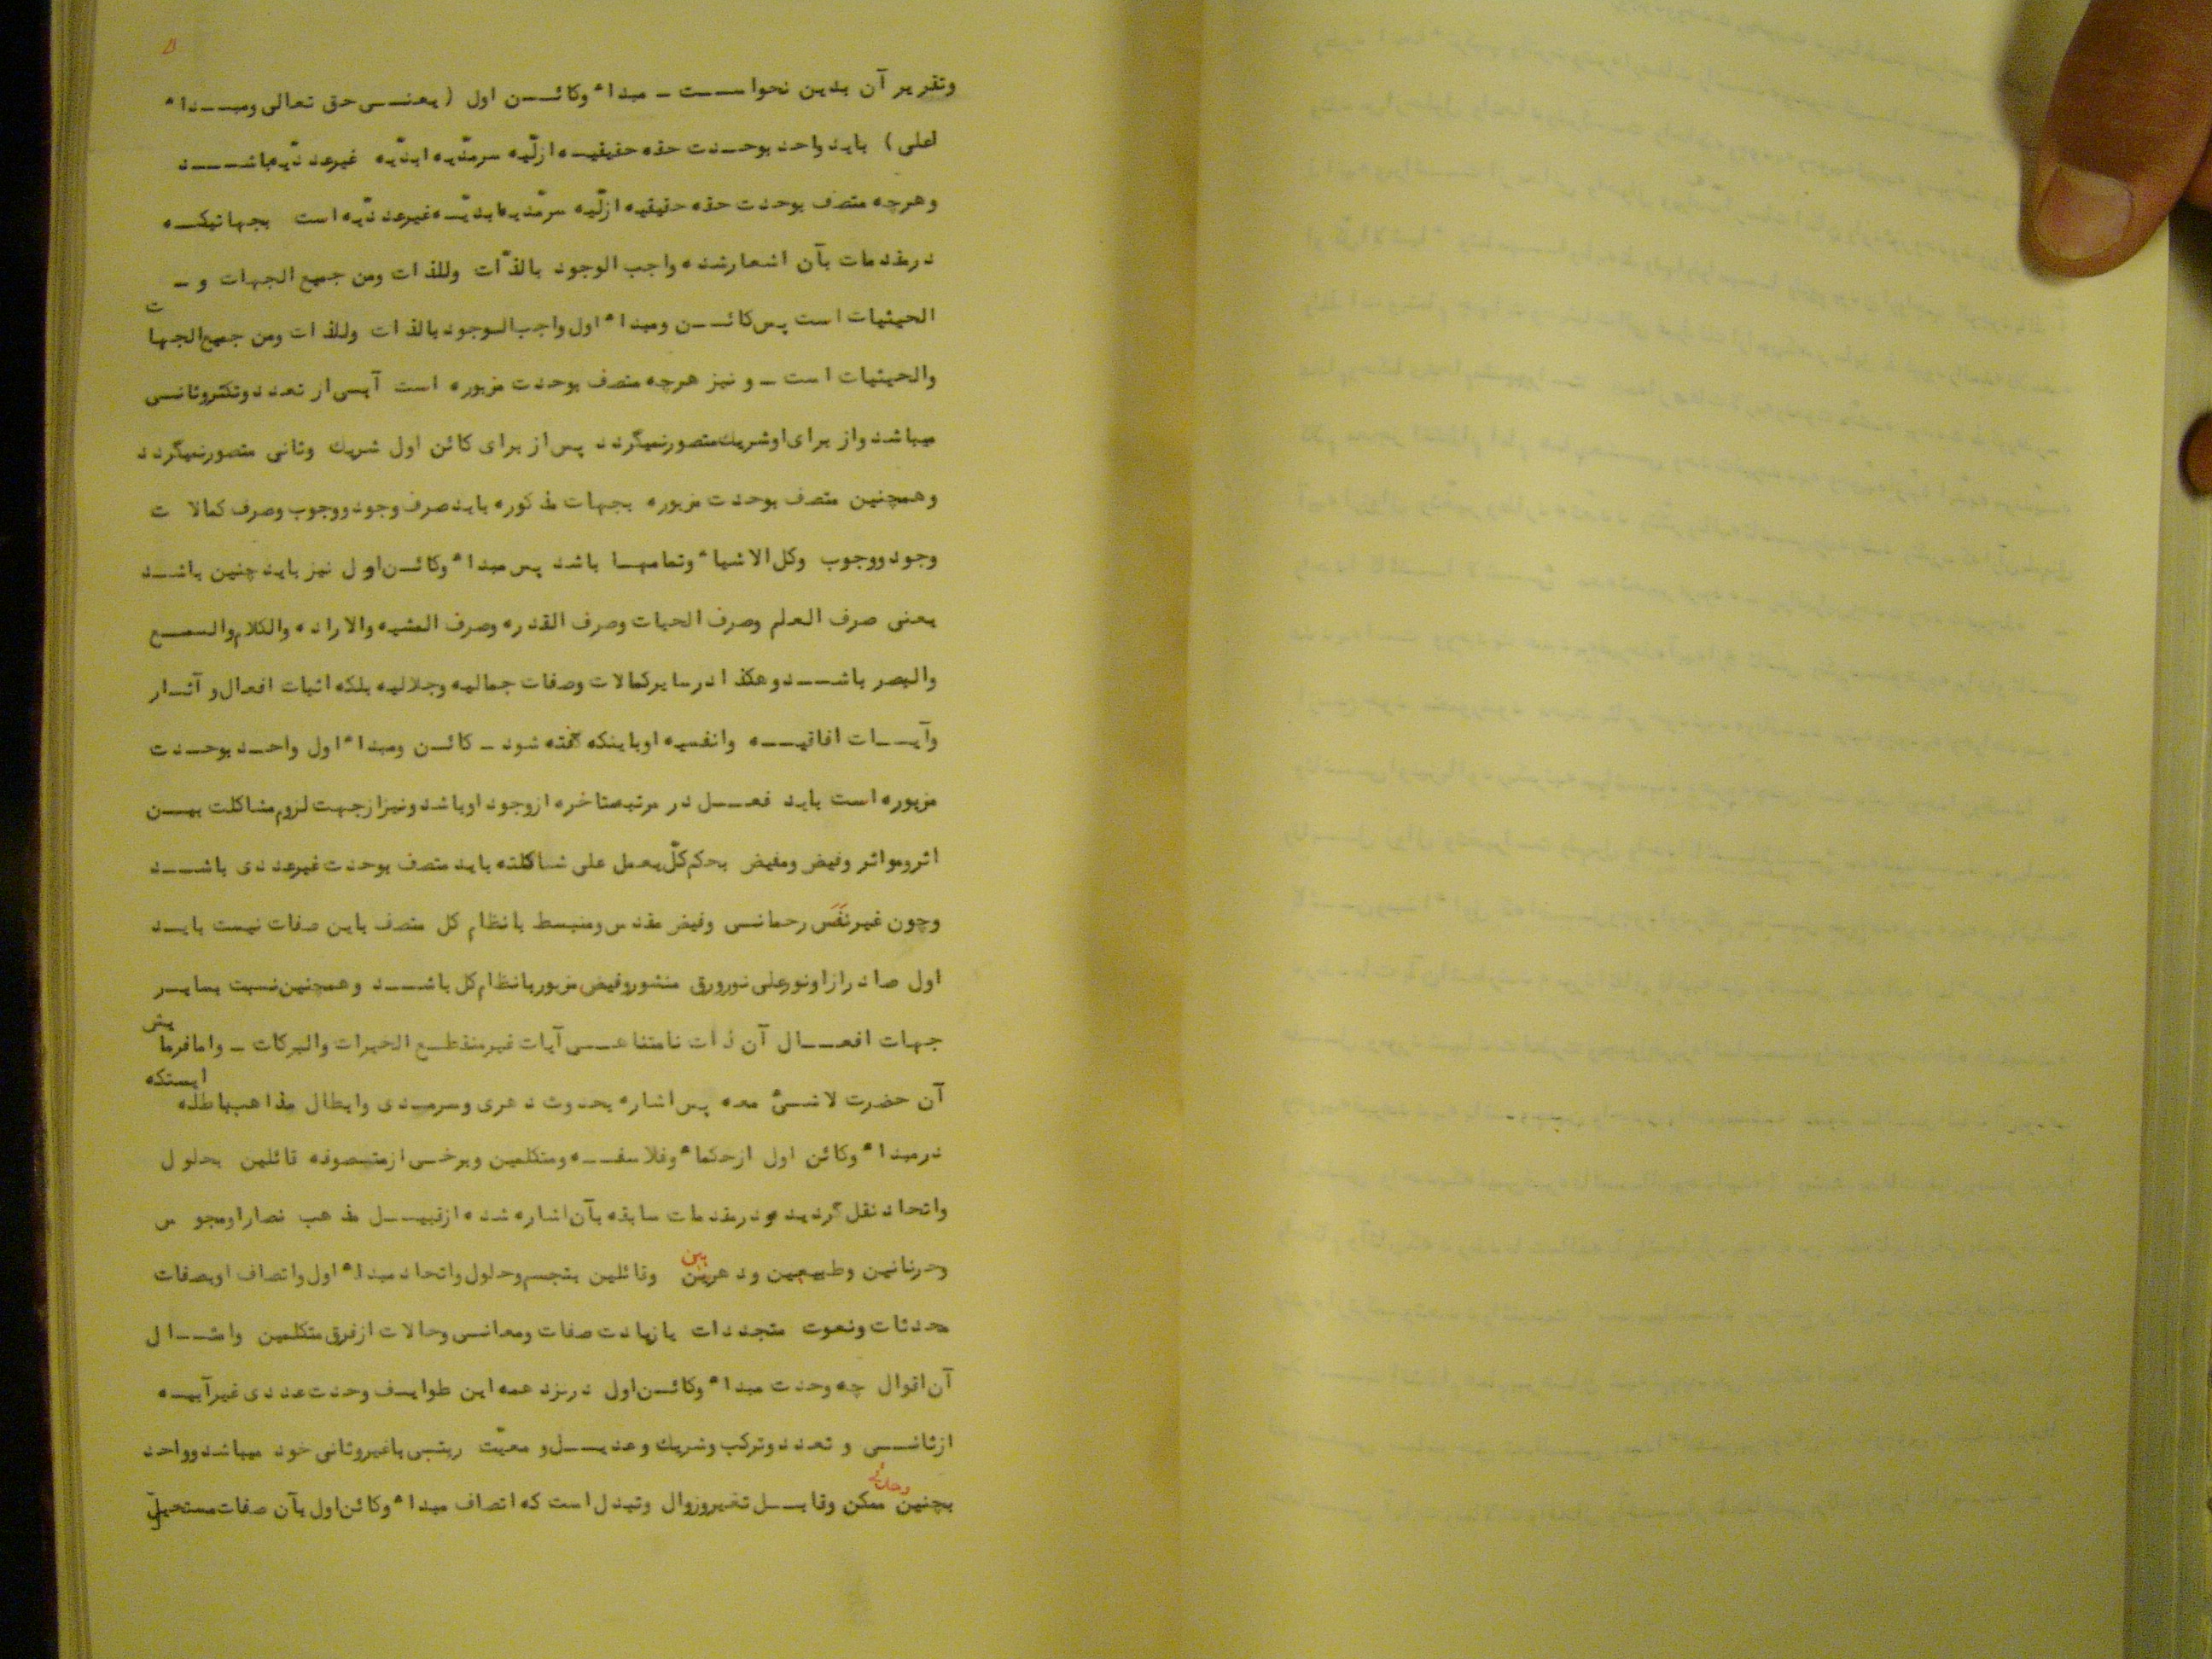 وتقریر آن بدین نحواست ـ مبداء وکائن اول ( یعنی حق تعالی ومبداء
اعلی ) باید واحد بوحدت حقه حقیقیه ازلّیه سرمدّیه ابدّیه غیرعددّیه باشد
وهرچه متصف بوحدت حقه حقیقیه ازلّیه سرمّدیه ابدیّه غیرعددّیه است بجهاتیکه
درمقدمات بآن اشعارشده واجب الوجود بالذّات وللذات ومن جمیع الجهات و ـ
الحیثیات است پس کائن ومبداء اول واجب الوجود بالذات وللذات ومن جمیع الجهات
والحیثیات است ـ و نیز هرچه متصف بوحدت مزبوره است آبی از تعدد وتکثروثانی
میباشد واز برای اوشریك متصورنمیگردد پس از برای کائن اول شریك وثانی متصورنمیگردد
وهمچنین متصف بوحدت مزبوره بجهات مذکوره باید صرف وجود ووجوب وصرف کمالات
وجود ووجوب وکل الاشیاء وتمامها باشد پس مبداء وکائن اول نیز باید چنین باشد
یعنی صرف العلم وصرف الحیات وصرف القدره وصرف المشیه والاراده والکلام والسمع
والبصر باشد وهکذا درسایرکمالات وصفات جمالیه وجلالیه بلکه اثبات افعال و آثار
وآیات افاقیه وانفسیه اوباینکه گفته شود ـ کائن ومبداء اول واحد بوحدت
مزبوره است باید فعل در مرتبه متاخره ازوجود اوباشد ونیزازجهت لزوم مشاکلت بین
اثروموثر وفیض ومفیض بحکم کلّ یعمل علی شاکلته باید متصف بوحدت غیرعددی باشد
وچون غیرنفَس رحمانی وفیض مقدس ومنبسط بانظام کل متصف باین صفات نیست باید
اول صادرازاونورعلی نورورق منشوروفیض مزبوربانظام کل باشد وهمچنین نسبت بسایر
جهات افعال آن ذات نامتناهی آیات غیرمنقطع الخیرات والبرکات ـ وامافرمایش
آن حضرت لاشیٔ معه پس اشاره بحدوث دهری وسرمدی وابطال مذاهب باطله ایستکه
درمبداء وکائن اول ازحکماء وفلاسفه ومتکلمین وبرخی ازمتصوفه قائلین بحلول
واتحاد نقل گردیده ودرمقدمات سابقه بآن اشاره شده ازقبیل مذهب نصاراومجوس
وحرنانین وطبیعیین ودهریین وقائلین بتجسم وحلول واتحاد مبداء اول واتصاف اوبصفات
محدثات ونعوت متجددات یازیادت صفات ومعانی وحالات ازفرق متکلمین وامثال
آن اقوال چه وحدت مبداء وکائن اول درنزد همه این طوایف وحدت عددی غیرآبیه
ازثانی و تعدد وترکب وشریك وعدیل و معیّت ریتبی باغیروثانی خود میباشد وواحد
بچنین وحدتی ممکن وقابل تغیروزوال وتبدل است که اتصاف مبداء وکائن اول بآن صفات مستحیل